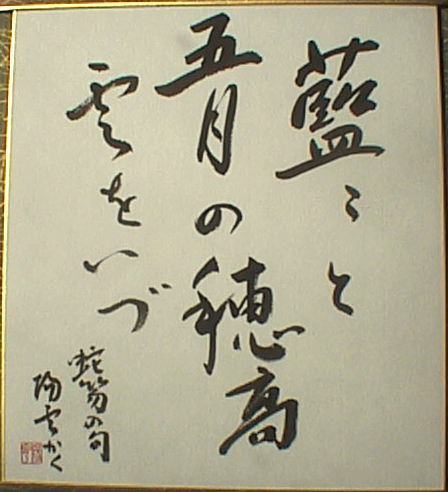 藍〻と
五月の穂高
雲をいづ
蛇笏の句
陽雲かく